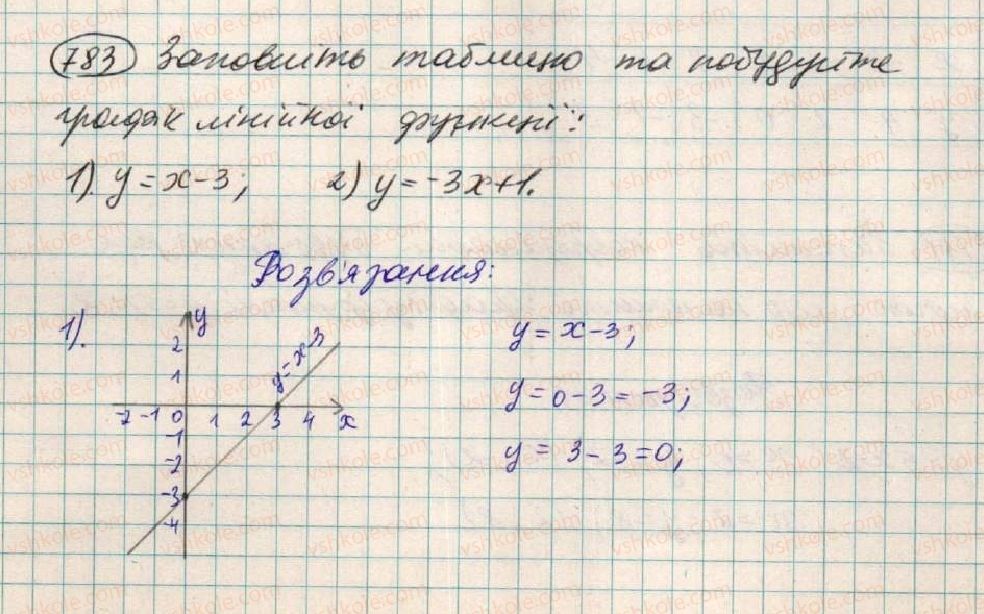 783 Заповніть таблицю та побудуйте
графік лінійної функції:
1). y = x - 3; 2) y = -3x + 1.
Розв'язання:
1).
y
2
1
y = x - 3
-2 -1 0 1 2 3 4 x
-1
-2
-3
-4
y = x - 3;
y = 0 - 3 = -3;
y = 3 - 3 = 0;
vshkole.com